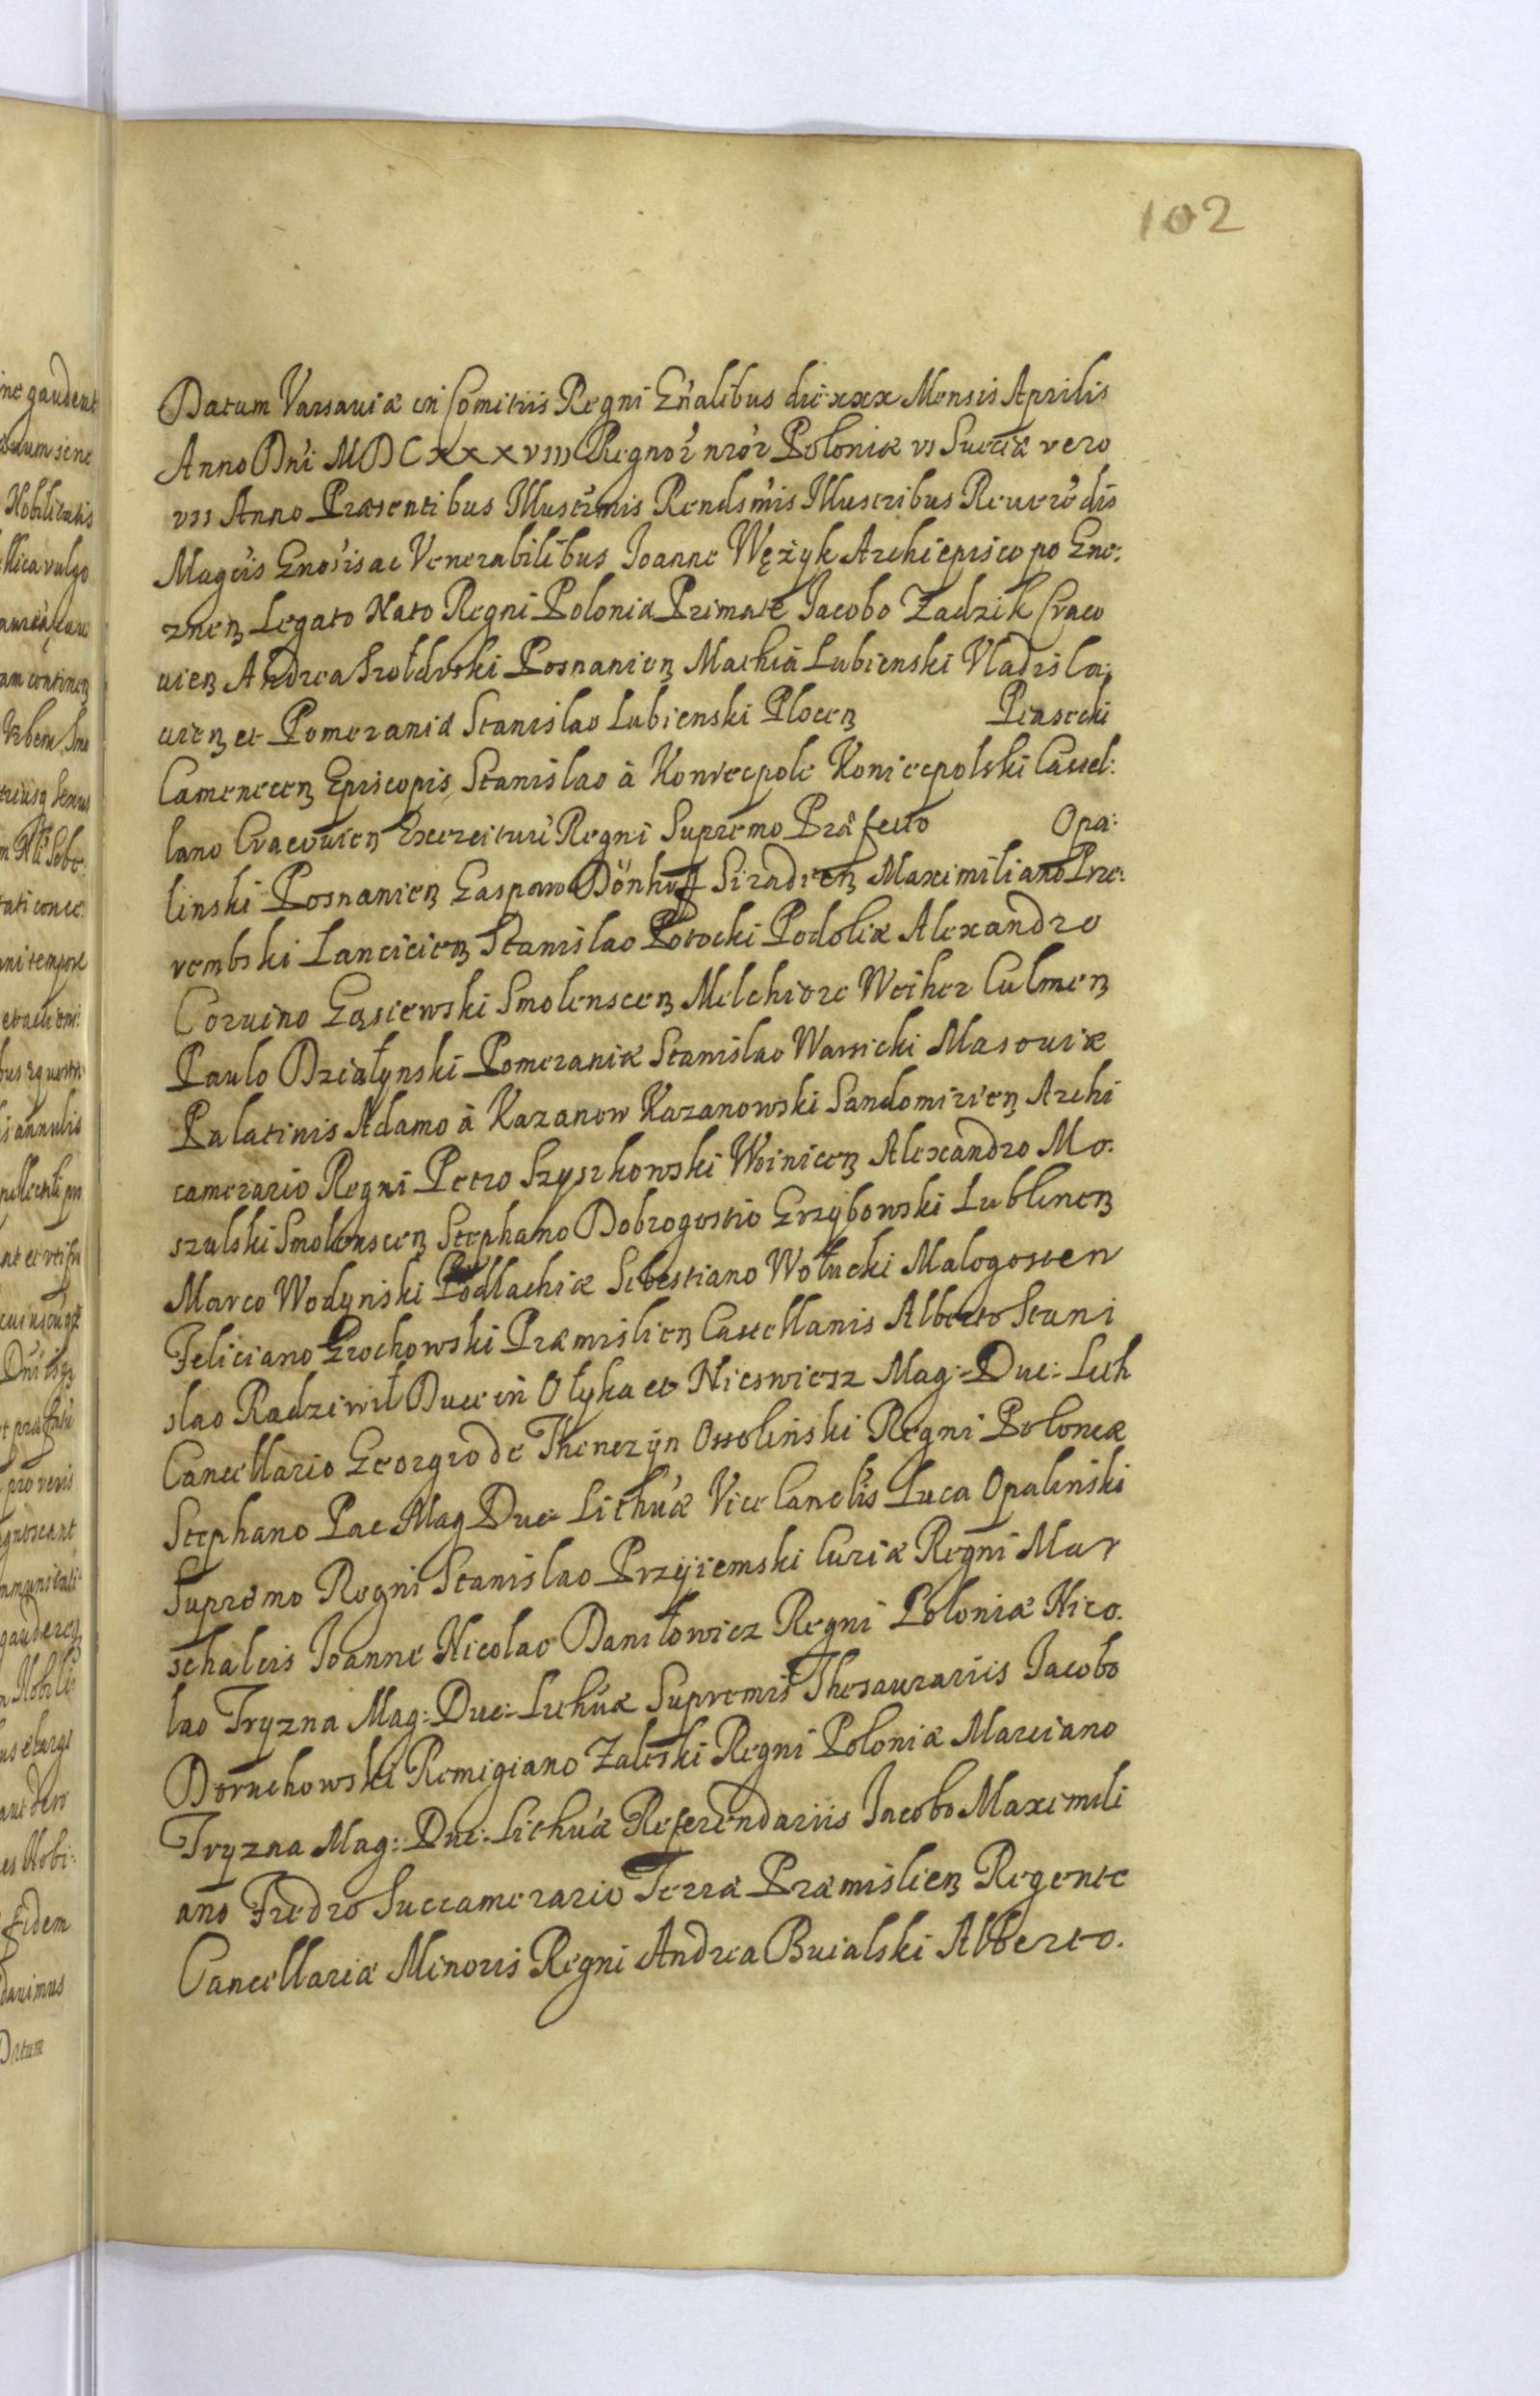 102
Datum Varsaviæ in Comitiis Regni Gñalibus die xxx Mensis Aprilis
Anno Dñi MDCXXXVIII Regnor̃ nr̃or̃ Poloniæ vi Sueciæ vero
vii Anno Præsentibus Illustrm̃is Rendsm̃is Illustribus Reuerẽdis
Magcis Gnosis ac Venerabilibus Joanne Wężyk Archiepiscopo Gne:
znen Legato Nato Regni Poloniæ Primate Jacobo Zadzik Craco
uien Andrea Szołdrski Posnanien Mathia Lubienski Vladisla:
uien et Pomeraniæ Stanislao Lubienski Plocen Piasecki
Camenecen Episcopis Stanislao à Koniecpole Koniecpolski Castel:
lano Cracouien Exercituũ Regni Supremo Præfecto Opa:
linski Posnanien Gasparo Dönhoff Siradien Maximiliano Prze:
rembski Lancicien Stanislao Potocki Podoliæ Alexandro
Coruino Gąsiewski Smolenscen Melchiore Weiher Culmen
Paulo Działynski Pomeraniæ Stanislao Warsicki Masouiæ
Palatinis Adamo à Kazanow Kazanowski Sandomirien Archi
camerario Regni Petro Szyszkowski Woinicen Alexandro Mo:
szulski Smolenscen Stephano Dobrogostio Grzybowski Lublinen
Marco Wodynski Podlachiæ Sebestiano Wołucki Malogosten
Feliciano Grochowski Præmislien Castellanis Alberto Stani
slao Radziwił Duce in Ołyka et Nieswiesz Mag: Duc: Lith
Cancellario Georgio de Thenczyn Ossolinski Regni Poloniæ
Stephano Pac Mag Duc: Lithũæ Vicecancelis Luca Opalinski
Supremo Regni Stanislao Przyiemski Curiæ Regni Mar
schalcis Joanne Nicolao Daniłowicz Regni Poloniæ Nico:
lao Tryzna Mag: Duc: Lithũæ Supremis Thesaurariis Jacobo
Doruchowski Remigiano Zaleski Regni Poloniæ Marciano
Tryzna Mag: Duc: Lithuæ Referendariis Jacobo Maximili
ano Fredro Succamerario Terræ Præmislien Regente
Cancellariæ Minoris Regni Andrea Buialski Alberto.